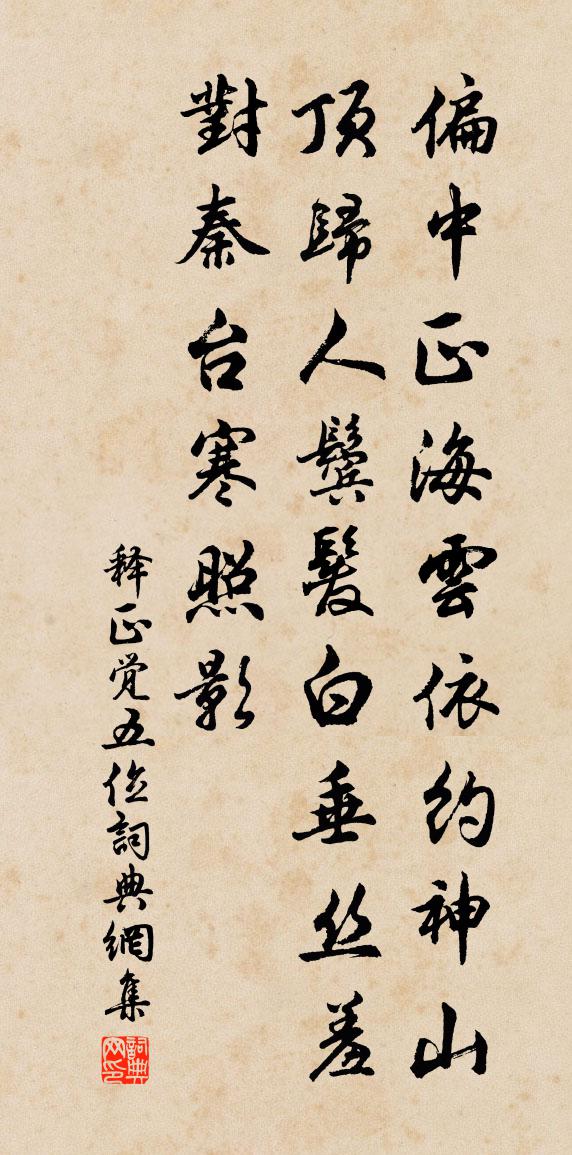 偏中正海雲依約神山
頂歸人鬢髮白垂丝羞
對秦台寒照影
释正覚五位詞典網集
詞典网印